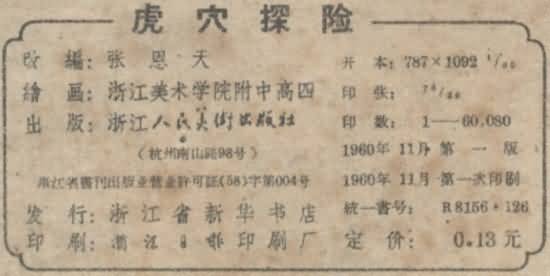 虎穴探险
改编：张恩天
繪画：浙江美术学院附中高四
出版：浙江人民美術出版社
（杭州南山路98号）
浙江省書刊出版业营业許可証(58)字第004号
发行：浙江省新华書店
印刷：浙江日報印刷厂
开本：787×1092
印张：
印数：1——60,080
1960年11月第一版
1960年11月第一次印刷
統一書号：R8156·126
定价：0.13元